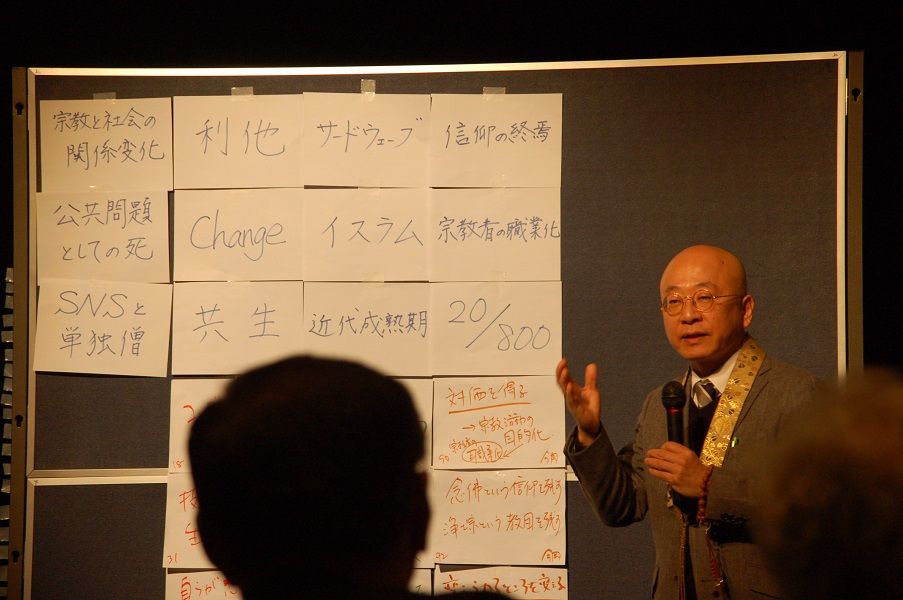 宗教と社会の
関係変化
利他
サードウェーブ
信仰の終焉
公共問題
としての死
Change
イスラム
宗教者の職業化
SNSと
単独僧
共生
近代成熟期
20/800
対価を得る
→宗教活動の
目的化
90
念佛という信仰を残す
浄土宗という教団を残す
92
18
31
自らが
変えられるところを変える